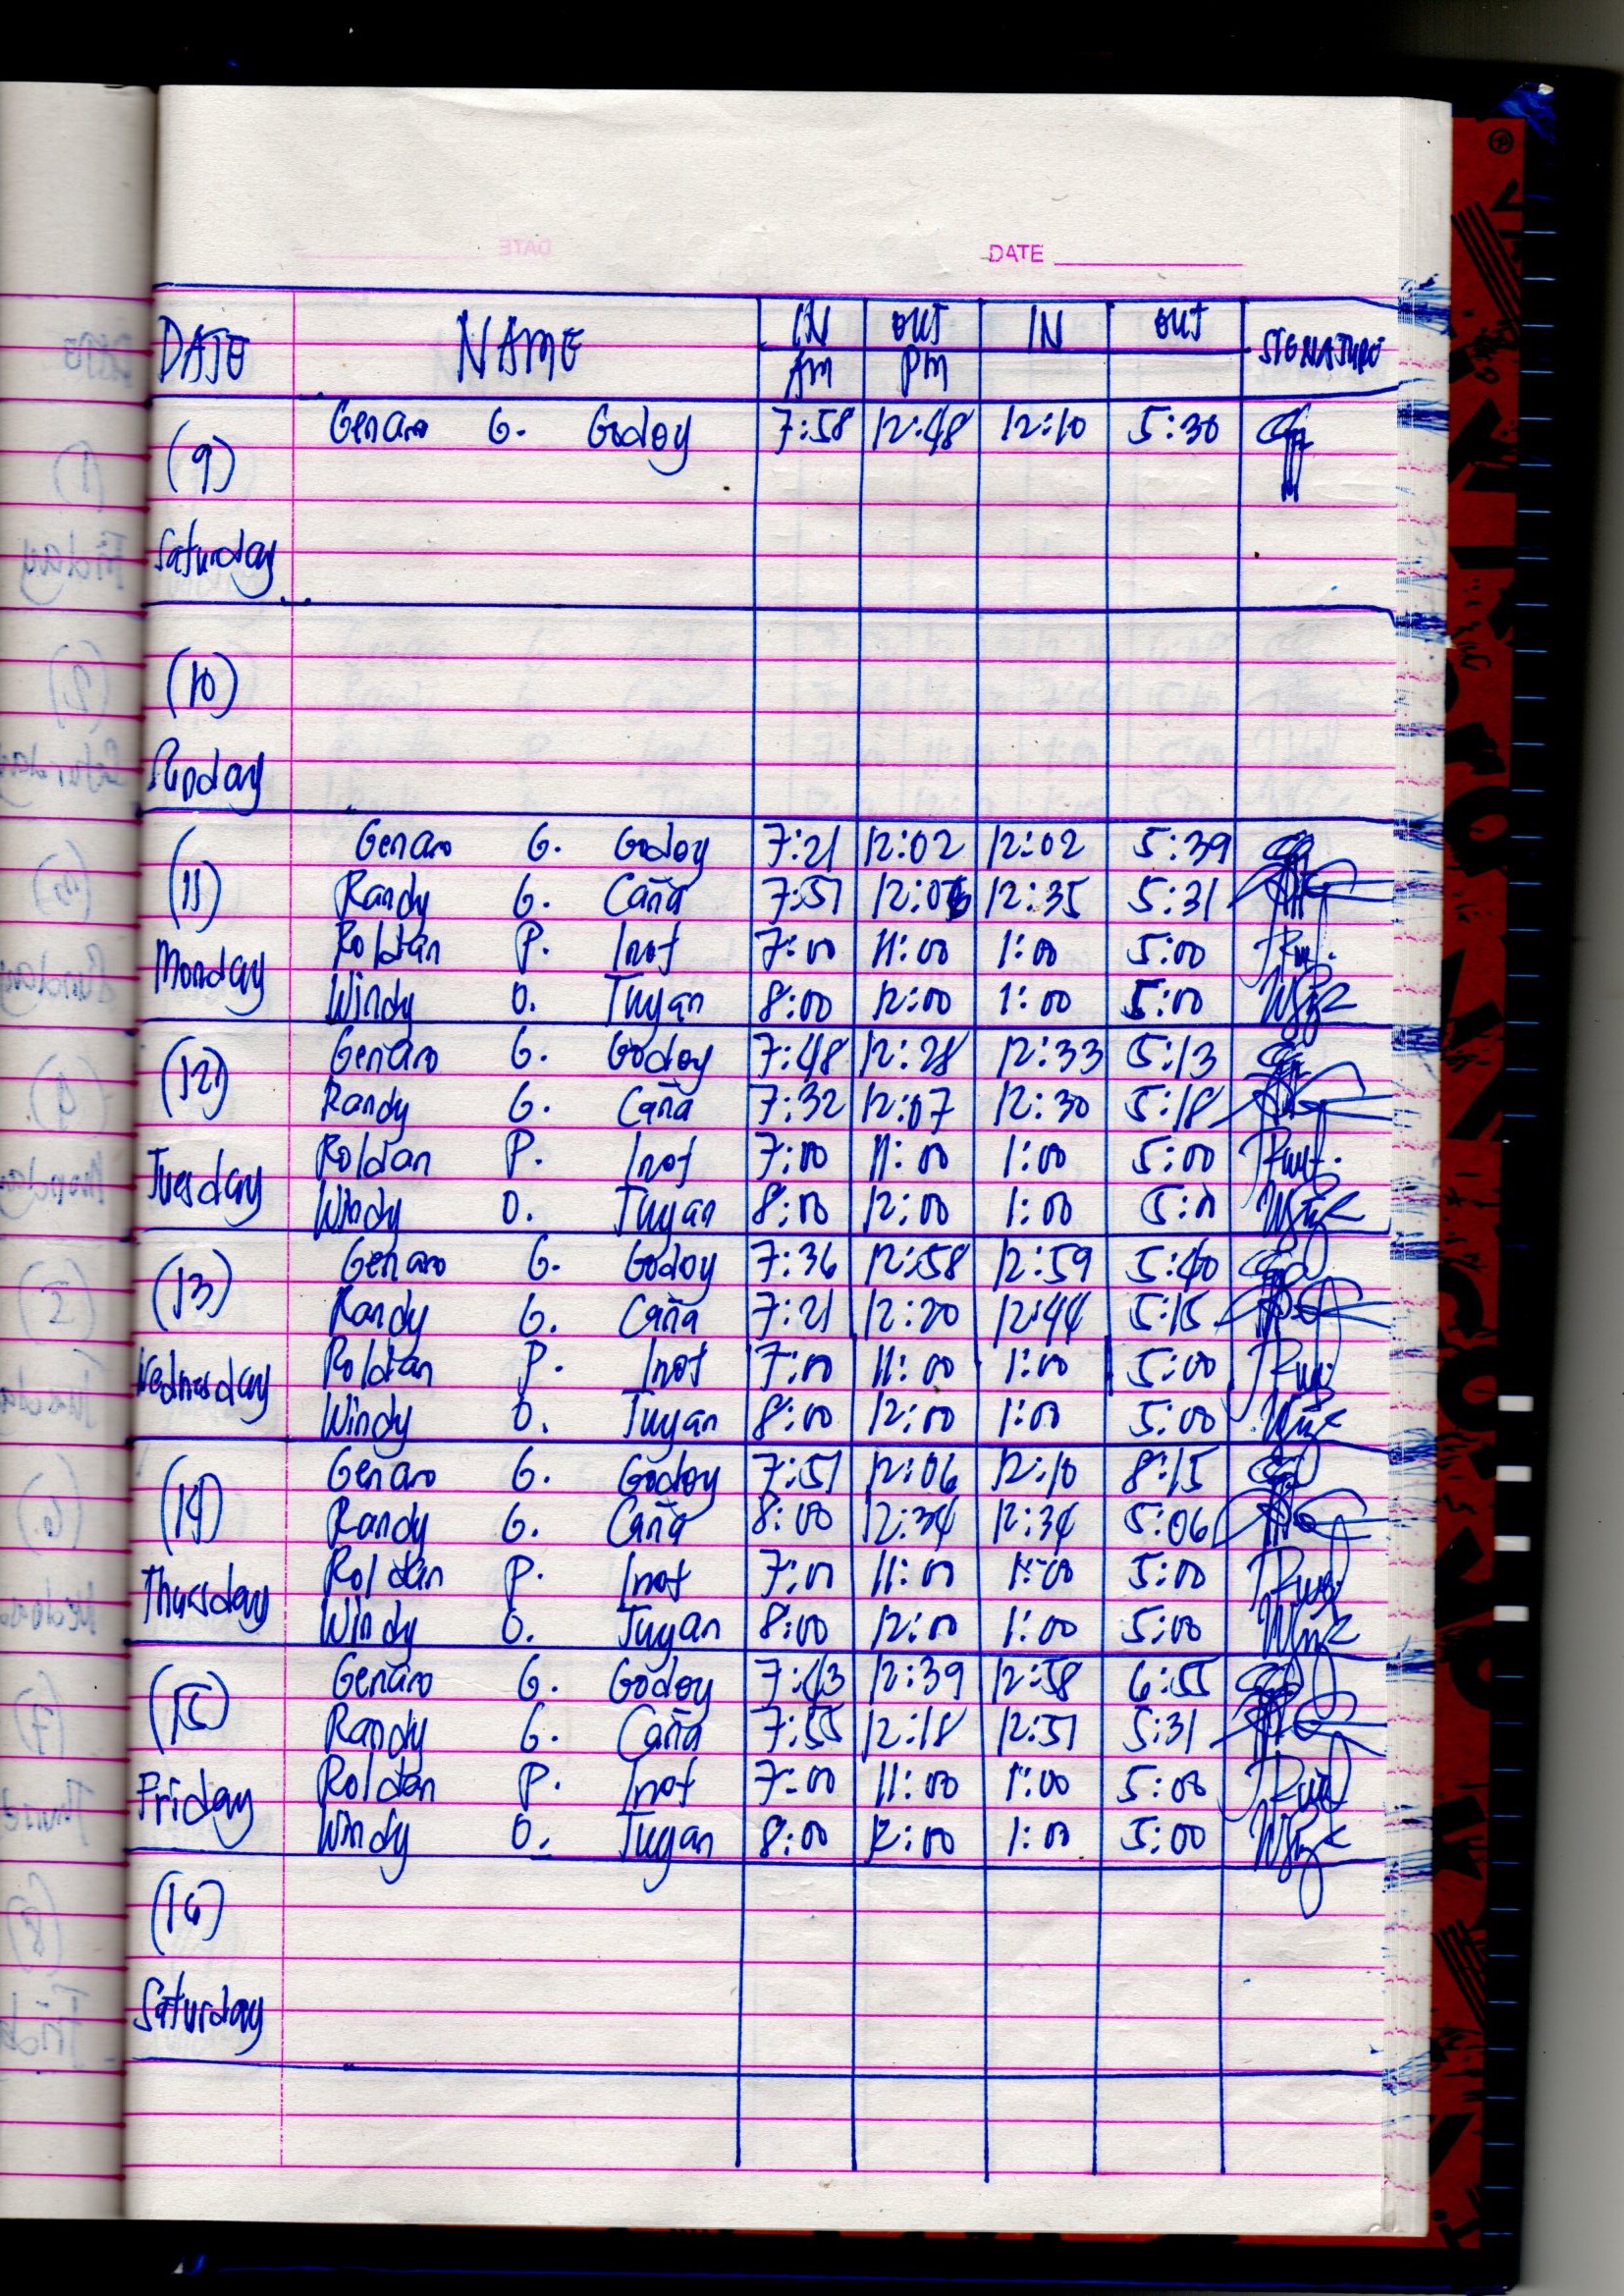 DATE
DATE NAME IN OUT IN OUT SIGNATURE
AM PM
Genaro G. Godoy 7:58 12:48 12:10 5:30
(9)
Saturday
(10)
Sunday
Genaro G. Godoy 7:21 12:02 12:02 5:39
(11) Randy G. Caña 7:51 12:06 12:35 5:31
Monday Roldan P. Inot 7:00 11:00 1:00 5:00
Windy O. Tuyan 8:00 12:00 1:00 5:00
(12) Genaro G. Godoy 7:48 12:28 12:33 5:13
Randy G. Caña 7:32 12:07 12:30 5:18
Tuesday Roldan P. Inot 7:00 11:00 1:00 5:00
Windy O. Tuyan 8:00 12:00 1:00 5:00
(13) Genaro G. Godoy 7:36 12:58 12:59 5:40
Randy G. Caña 7:21 12:20 12:44 5:15
Wednesday Roldan P. Inot 7:00 11:00 1:00 5:00
Windy O. Tuyan 8:00 12:00 1:00 5:00
(14) Genaro G. Godoy 7:51 12:06 12:10 8:15
Randy G. Caña 8:00 12:34 12:34 5:06
Thursday Roldan P. Inot 7:00 11:00 1:00 5:00
Windy O. Tuyan 8:00 12:00 1:00 5:00
(15) Genaro G. Godoy 7:43 12:39 12:58 6:55
Randy G. Caña 7:55 12:18 12:51 5:31
Friday Roldan P. Inot 7:00 11:00 1:00 5:00
Windy O. Tuyan 8:00 12:00 1:00 5:00
(16)
Saturday